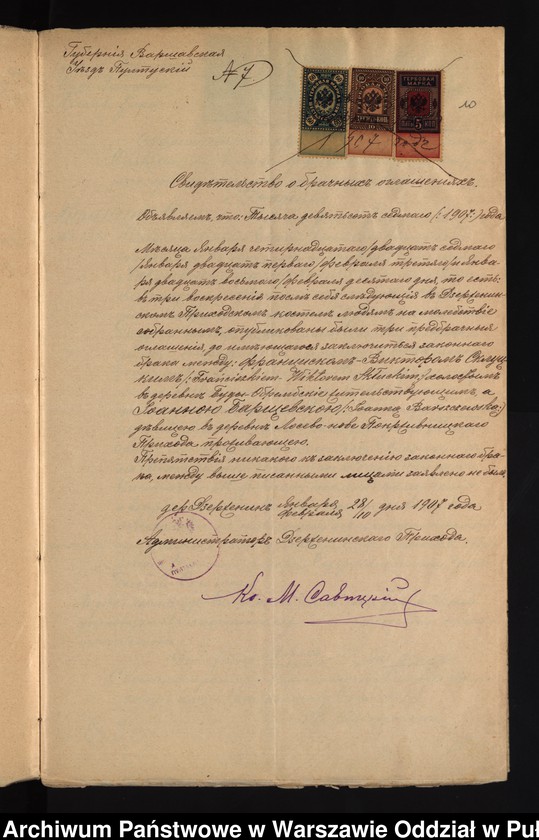 Губернія Варшавская
Уѣздъ Пултускій
№ 7
10
ГЕРБОВАЯ МАРКА
5
1907 года
Свидѣтельство о брачныхъ оглашеніяхъ.
Объявляемъ, что: Тысяча девятьсотъ седьмаго /:1907:/ года
Мѣсяца Января четырнадцатаго /двадцать седьмаго
/Января двадцать перваго/ февраля третяго/ и Янва-
ря двадцать восьмаго/ февраля десятаго дня, то есть:
въ три воскресенія послѣ себя слѣдующія въ Дзержении-
скомъ Приходскомъ костелѣ людямъ на молебствіе
собраннымъ, опубликованы были три предбрачныя
оглашенія до имѣющагося заключиться законнаго
брака между: Францискомъ-Викторомъ
/: Franciszkiem-Wiktorem холостымъ
въ деревнѣ Буды-Обрембскіе жительствующимъ, а
Іоанною Барщевскою /: Joanną
дѣвицею въ деревнѣ Лосево-нове Покрживницкаго
Прихода проживающею.
Препятствій никакого къ заключенію законнаго бра-
ка, между выше писанными лицами заявлено не было
дер. Дзерженинъ Января/февраля 28/10 дня 1907 года
Администраторъ Дзерженинскаго Прихода.
Кс. М. Савицкій
Archiwum Państwowe w Warszawie Oddział w Puł